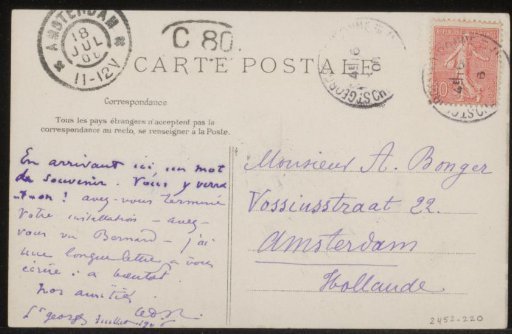 AMSTERDAM
18
JUL
11-12V
C 80.
CARTE POSTALE
Correspondance
Tous les pays étrangers n'acceptent pas la
correspondance au recto, se renseigner à la Poste.
En arrivant ici, un mot
de souvenir. Vous y verra
-t-on! avez-vous terminé
votre installation - avez-
vous vu Bernard - j'ai
une longue lettre à vous
écrire: à bientôt.
nos amitiés
St georges Juillet
Monsieur A. Bonger
Vossiusstraat 22.
Amsterdam
Hollande
2452-220